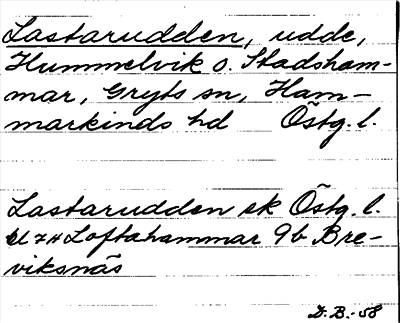 Lastarudden, udde,
Hummelvik o. Stadsham-
mar, Gryts sn, Ham-
markinds hd Östg. l.
Lastarudden ek Östg. l.
Loftahammar 9b Bre-
viksnäs
D.B.-58